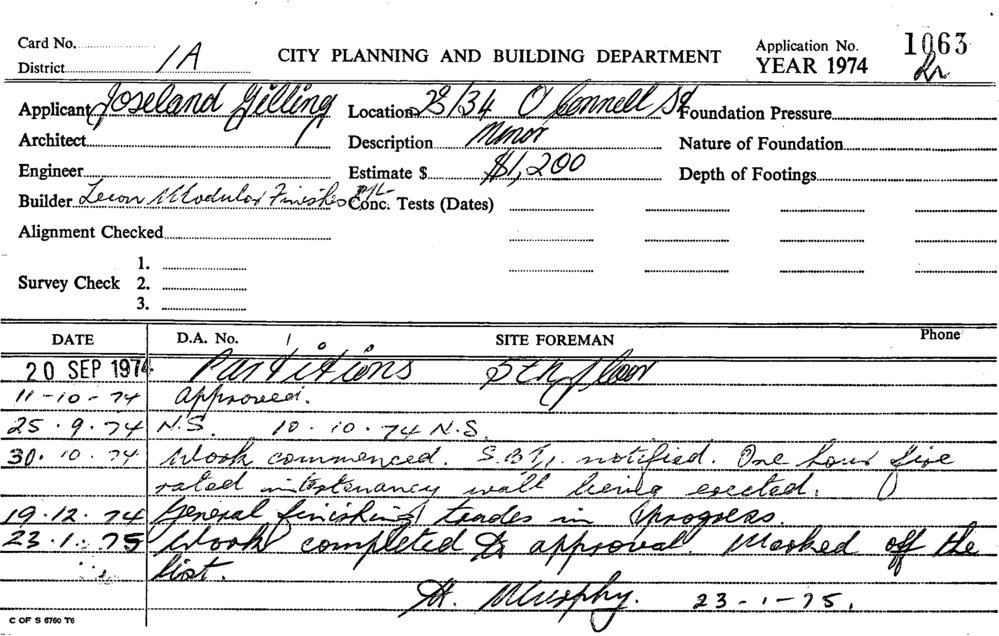 Card No.
District 1A
CITY PLANNING AND BUILDING DEPARTMENT
Application No. 1063
YEAR 1974
Applicant Joseland Gilling
Location 28/34 O'Connell St
Foundation Pressure
Architect
Description Minor
Nature of Foundation
Engineer
Estimate $ $1,200
Depth of Footings
Builder Modular Finishes P/L
Conc. Tests (Dates)
Alignment Checked
Survey Check
1.
2.
3.
DATE D.A. No. / SITE FOREMAN Phone
20 SEP 1974 Partitions 5th floor
11-10-74 approved.
25.9.74 N.S. 10.10.74 N.S.
30.10.74 Work commenced. notified. One hour fire
rated intertenancy wall being erected.
19.12.74 General finishing trades in progress.
23.1.75 Work completed to approval. Marked off the
list.
H. Murphy. 23-1-75.
C OF S 6760 T6